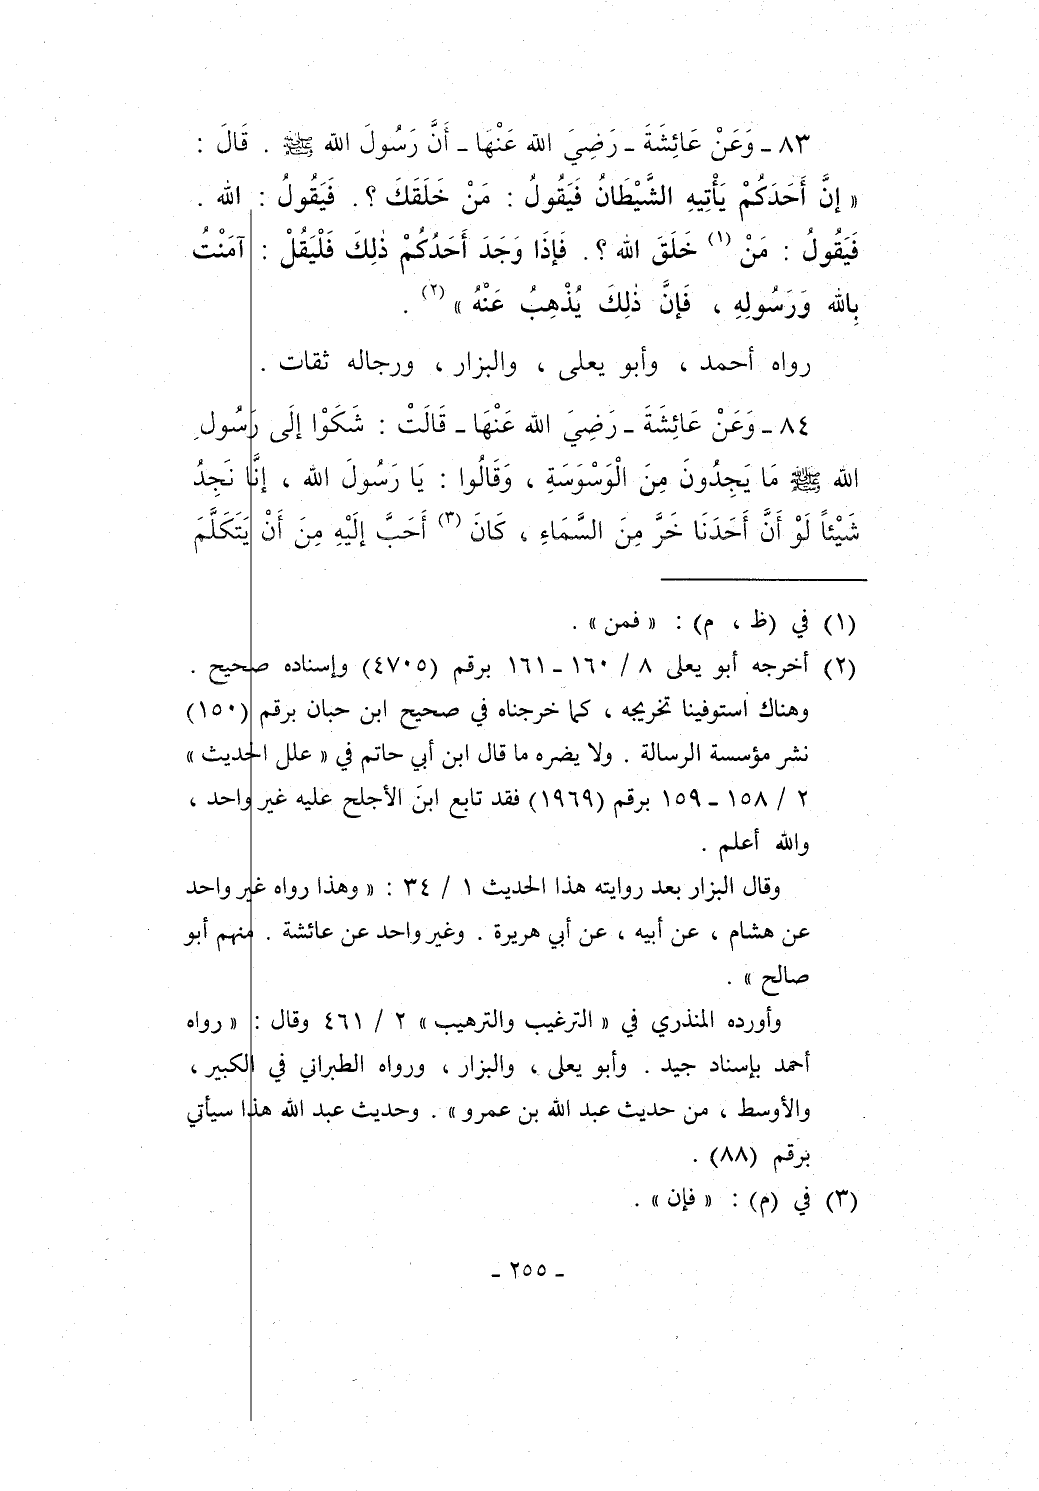 ٨٣ ـ وَعَنْ عَائِشَةَ ـ رَضِيَ الله عَنْهَا ـ أَنَّ رَسُولَ الله ﷺ . قَالَ :
« إنَّ أَحَدَكُمْ يَأْتِيهِ الشَّيْطَانُ فَيَقُولُ : مَنْ خَلَقَكَ ؟. فَيَقُولُ : الله .
فَيَقُولُ : مَنْ (١) خَلَقَ الله ؟. فَإذَا وَجَدَ أَحَدُكُمْ ذٰلِكَ فَلْيَقُلْ : آمَنْتُ
بِالله وَرَسُولِهِ ، فَإنَّ ذٰلِكَ يُذْهِبُ عَنْهُ » (٢) .
رواه أحمد ، وأبو يعلى ، والبزار ، ورجاله ثقات .
٨٤ ـ وَعَنْ عَائِشَةَ ـ رَضِيَ الله عَنْهَا ـ قَالَتْ : شَكَوْا إلَى رَسُولِ
الله ﷺ مَا يَجِدُونَ مِنَ الْوَسْوَسَةِ ، وَقَالُوا : يَا رَسُولَ الله ، إنَّا نَجِدُ
شَيْئاً لَوْ أَنَّ أَحَدَنَا خَرَّ مِنَ السَّمَاءِ ، كَانَ (٣) أَحَبَّ إلَيْهِ مِنَ أَنْ يَتَكَلَّمَ
(١) في (ظ ، م) : « فمن » .
(٢) أخرجه أبو يعلى ٨ / ١٦٠ ـ ١٦١ برقم (٤٧٠٥) وإسناده صحيح .
وهناك استوفينا تخريجه ، كما خرجناه في صحيح ابن حبان برقم (١٥٠)
نشر مؤسسة الرسالة . ولا يضره ما قال ابن أبي حاتم في « علل الحديث »
٢ / ١٥٨ ـ ١٥٩ برقم (١٩٦٩) فقد تابع ابنَ الأجلح عليه غير واحد ،
والله أعلم .
وقال البزار بعد روايته هذا الحديث ١ / ٣٤ : « وهذا رواه غير واحد
عن هشام ، عن أبيه ، عن أبي هريرة . وغير واحد عن عائشة . منهم أبو
صالح » .
وأورده المنذري في « الترغيب والترهيب » ٢ / ٤٦١ وقال : « رواه
أحمد بإسناد جيد . وأبو يعلى ، والبزار ، ورواه الطبراني في الكبير ،
والأوسط ، من حديث عبد الله بن عمرو » . وحديث عبد الله هذا سيأتي
برقم (٨٨) .
(٣) في (م) : « فإن » .
ـ ٢٥٥ ـ